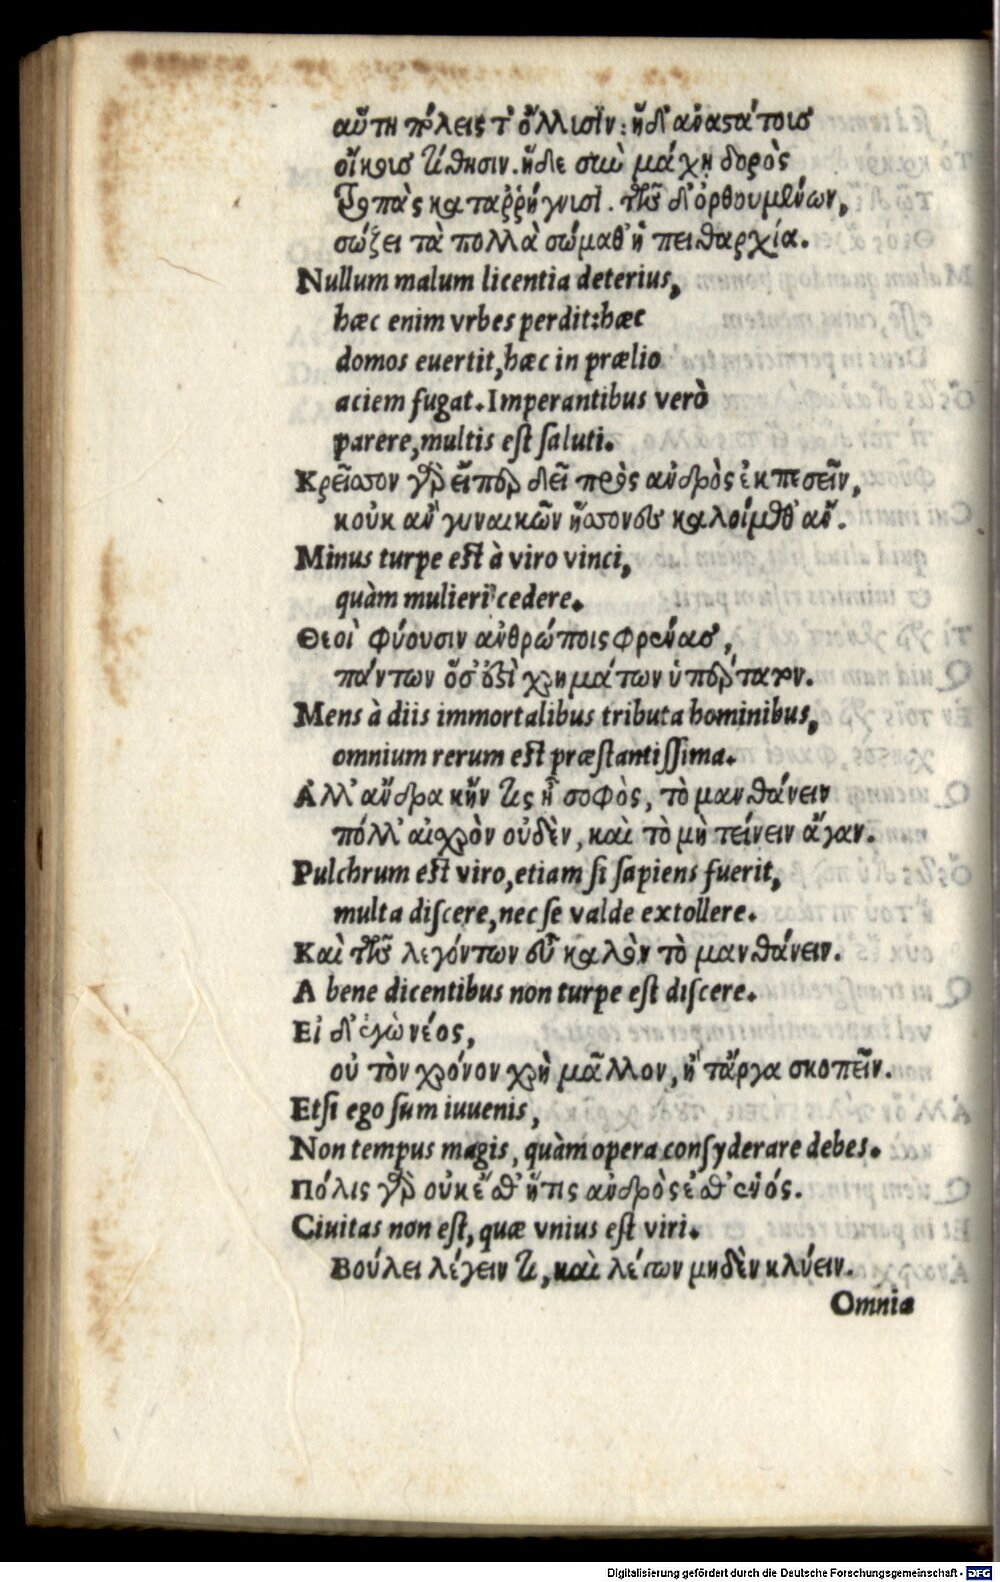 αὕτη πόλεις τ' ὄλλισιν: ἥδ' ἀναστάτοισ
οἴκοισ τίθησιν. ἥδε σιὼ μάχῃ δορὸς
Τροπὰς καταῤῥήγνισι. τῶν δ' ὀρθουμένων,
σώζει τὰ πολλὰ σώμαθ' ἡ πειθαρχία.
Nullum malum licentia deterius,
hæc enim vrbes perdit: hæc
domos euertit, hæc in prælio
aciem fugat. Imperantibus verò
parere, multis est saluti.
Κρεῖασον γὰρ εἴπερ δεῖ πρὸς ἀνδρὸς ἐκπεσεῖν,
κοὐκ ἂν γυναικῶν ἥσσονες καλοίμεθ' ἄν.
Minus turpe est à viro vinci,
quàm mulieri cedere.
Θεοὶ φύουσιν ἀνθρώποις φρένασ,
πάντων ὅσ' ἐστὶ χρημάτων ὑπέρτατον.
Mens à diis immortalibus tributa hominibus,
omnium rerum est præstantissima.
Ἀλλ' ἄνδρα κἤν τις ᾖ σοφὸς, τὸ μανθάνειν
πόλλ' αἰχρὸν οὐδὲν, καὶ τὸ μὴ τείνειν ἄγαν.
Pulchrum est viro, etiam si sapiens fuerit,
multa discere, nec se valde extollere.
Καὶ τῶν λεγόντων εὖ καλὸν τὸ μανθάνειν.
A bene dicentibus non turpe est discere.
Εἰ δ' ἐγὼ νέος,
οὐ τὸν χρόνον χρὴ μᾶλλον, ἢ τἄργα σκοπεῖν.
Etsi ego sum iuuenis,
Non tempus magis, quàm opera consyderare debes.
Πόλις γὰρ οὐκ ἔσθ' ἥτις ἀνδρὸς ἐσθ' ἑνός.
Ciuitas non est, quæ vnius est viri.
Βούλει λέγειν τι, καὶ λέγων μηδὲν κλύειν.
Omnia
Digitalisierung gefördert durch die Deutsche Forschungsgemeinschaft - DFG